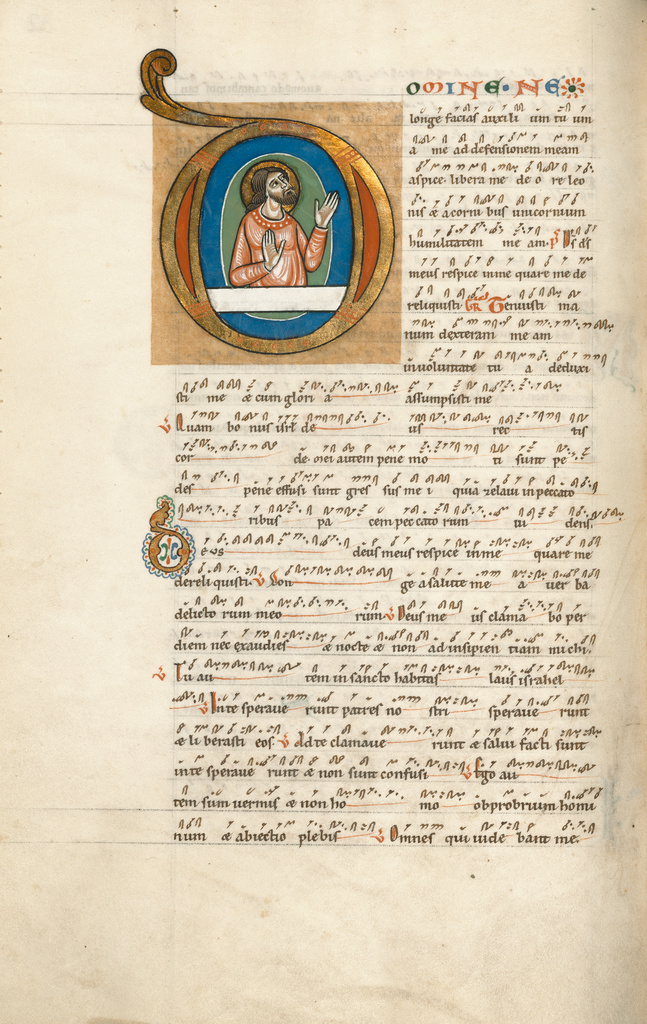 OMINE · NE
longe facias auxili um tu um
a me ad defensionem meam
aspice. libera me de o re leo
nis & a corni bus unicornium
humilitatem me am. p̄s Ds ds
meus respice in me quare me de
reliquisti. GR Tenuisti ma
num dexteram me am
in voluntate tu a deduxi
sti me & cum glori a assumpsisti me
V Quam bo nus isrl de us rec tis
cor de. mei autem pene mo ti sunt pe
des pene effusi sunt gres sus me i quia zelavi in peccato
ribus pa cem peccato rum tu dens.
eus deus meus respice in me quare me
dereli quisti. V Lon ge a salute me a ver ba
delicto rum meo rum. V Deus me us clama bo per
diem nec exaudies & nocte & non ad insipien tiam michi.
V Tu au tem in sancto habitas laus israhel
V In te sperave runt patres no stri sperave runt
& li berasti eos. V Ad te clamave runt & salvi facti sunt
in te sperave runt & non sunt confusi V Ego au
tem sum vermis & non ho mo obprobrium homi
num & abiectio plebis V Omnes qui vide bant me.